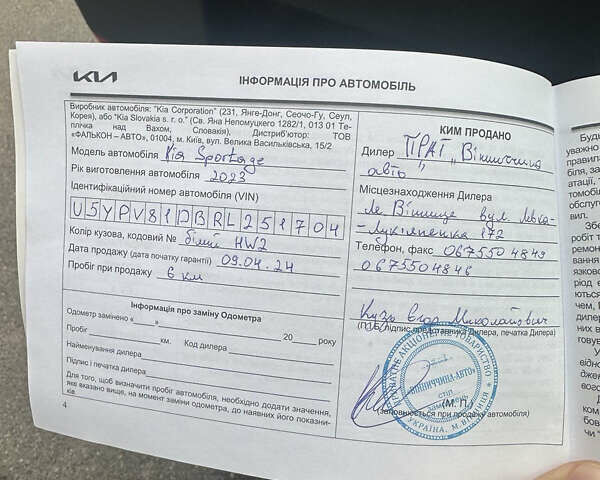 KIA
ІНФОРМАЦІЯ ПРО АВТОМОБІЛЬ
Виробник автомобіля: "Kia Corporation" (231, Янге-Донг, Сеочо-Гу, Сеул,
Корея), або "Kia Slovakia s. r. o." (Св. Яна Непомуцкего 1282/1, 013 01 Те-
плічка над Вахом, Словакія), Дистриб'ютор: ТОВ
«ФАЛЬКОН – АВТО», 01004, м. Київ, вул. Велика Васильківська, 15/2
Модель автомобіля Kia Sportage
Рік виготовлення автомобіля 2023
Ідентифікаційний номер автомобіля (VIN)
U5YPV81DBRL251704
Колір кузова, кодовий № білий HW2
Дата продажу (дата початку гарантії) 09.04.24
Пробіг при продажу 6 км
Інформація про заміну Одометра
Одометр замінено «___» 20 року
Пробіг км. Код дилера
Найменування дилера
Підпис і печатка дилера
Для того, щоб визначити пробіг автомобіля, необхідно додати значення,
яке вказано вище, на момент заміни одометра, до наявних його показни-
ків
4
КИМ ПРОДАНО
Дилер ПРАТ „Вінниччина
авто"
Місцезнаходження Дилера
м. Вінниця вул.
172
Телефон, факс 067550 4849
067550 4846
Кузь Єгор Миколайович
(П.І.Б., підпис представника Дилера, печатка Дилера)
ПРИВАТНЕ АКЦІОНЕРНЕ ТОВАРИСТВО
«ВІННИЧЧИНА-АВТО»
УКРАЇНА, М. ВІННИЦЯ
(М. П.)
(Заповнюється при продажу автомобіля)